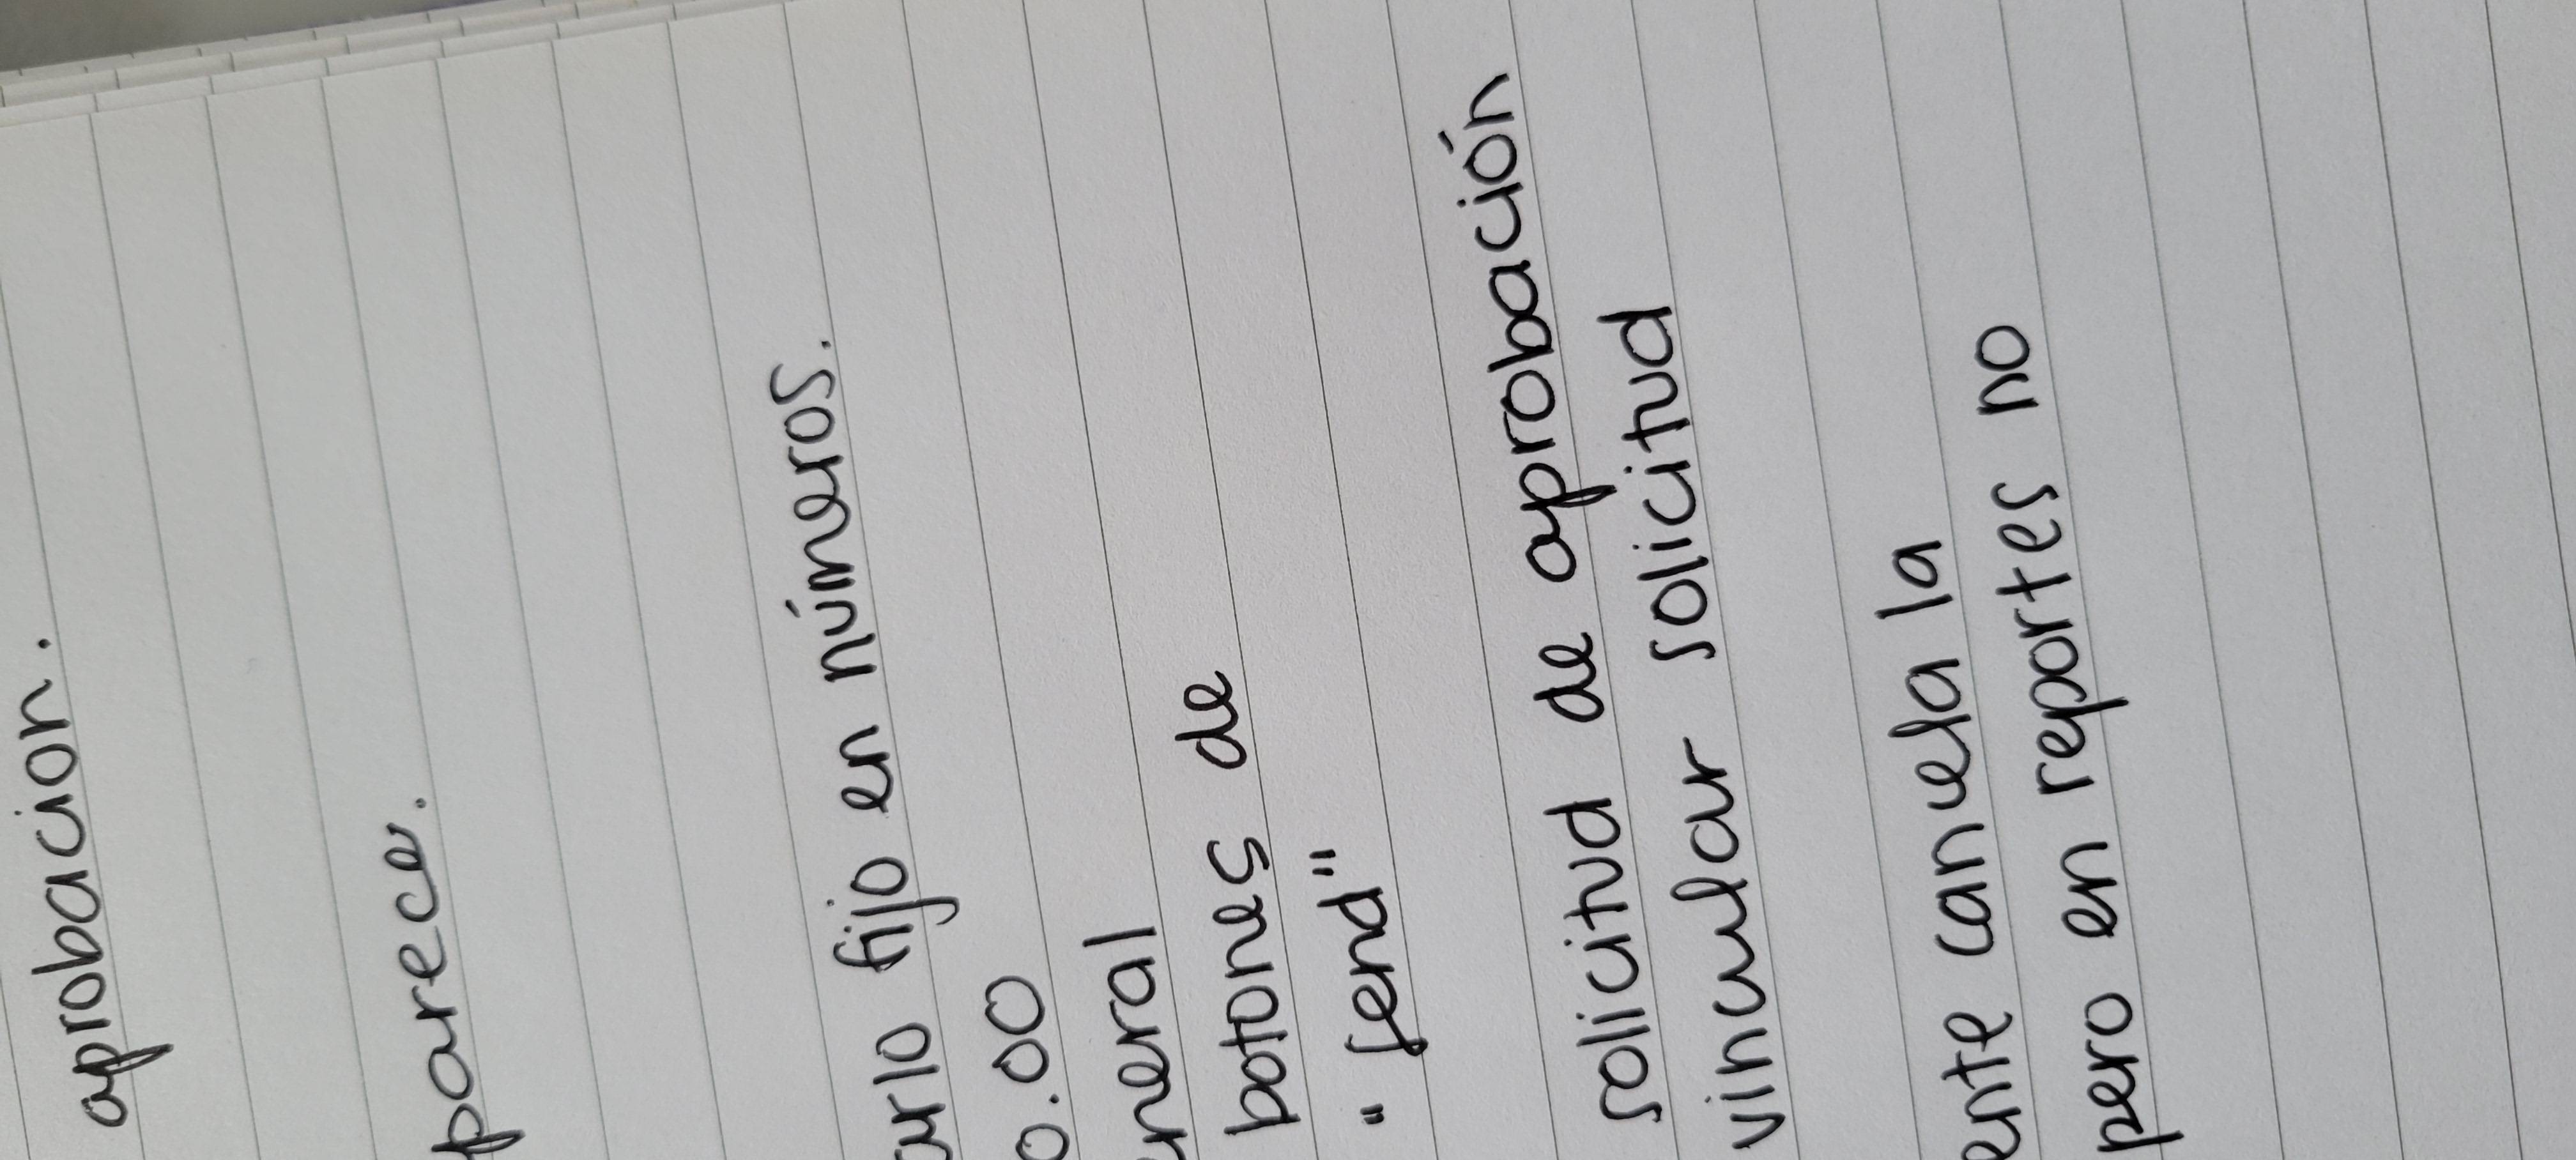 aprobación.
parece.
arlo fijo en números.
0.00
neral
botones de
"send"
solicitud de aprobación
vincular solicitud
ente cancela la
pero en reportes no